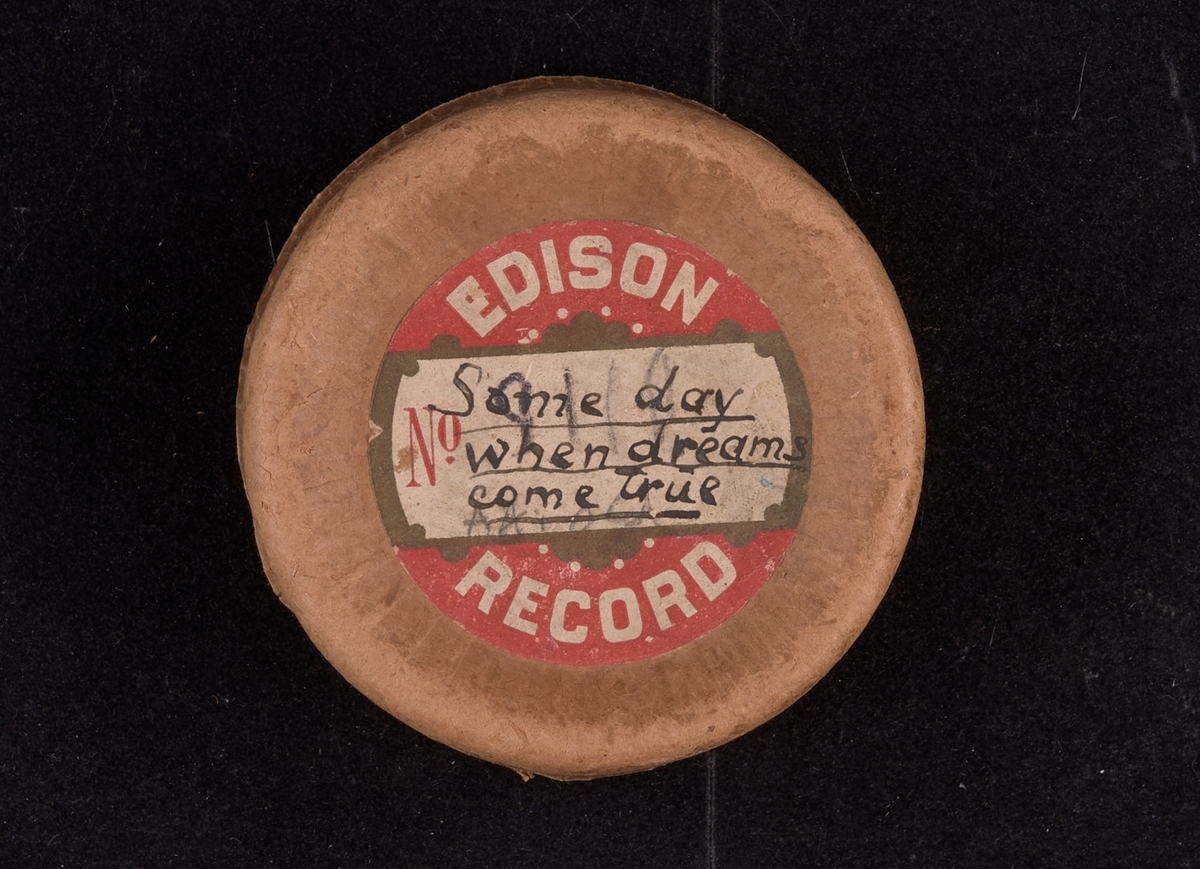 EDISON
Nº
Some day
when dreams
come true
RECORD